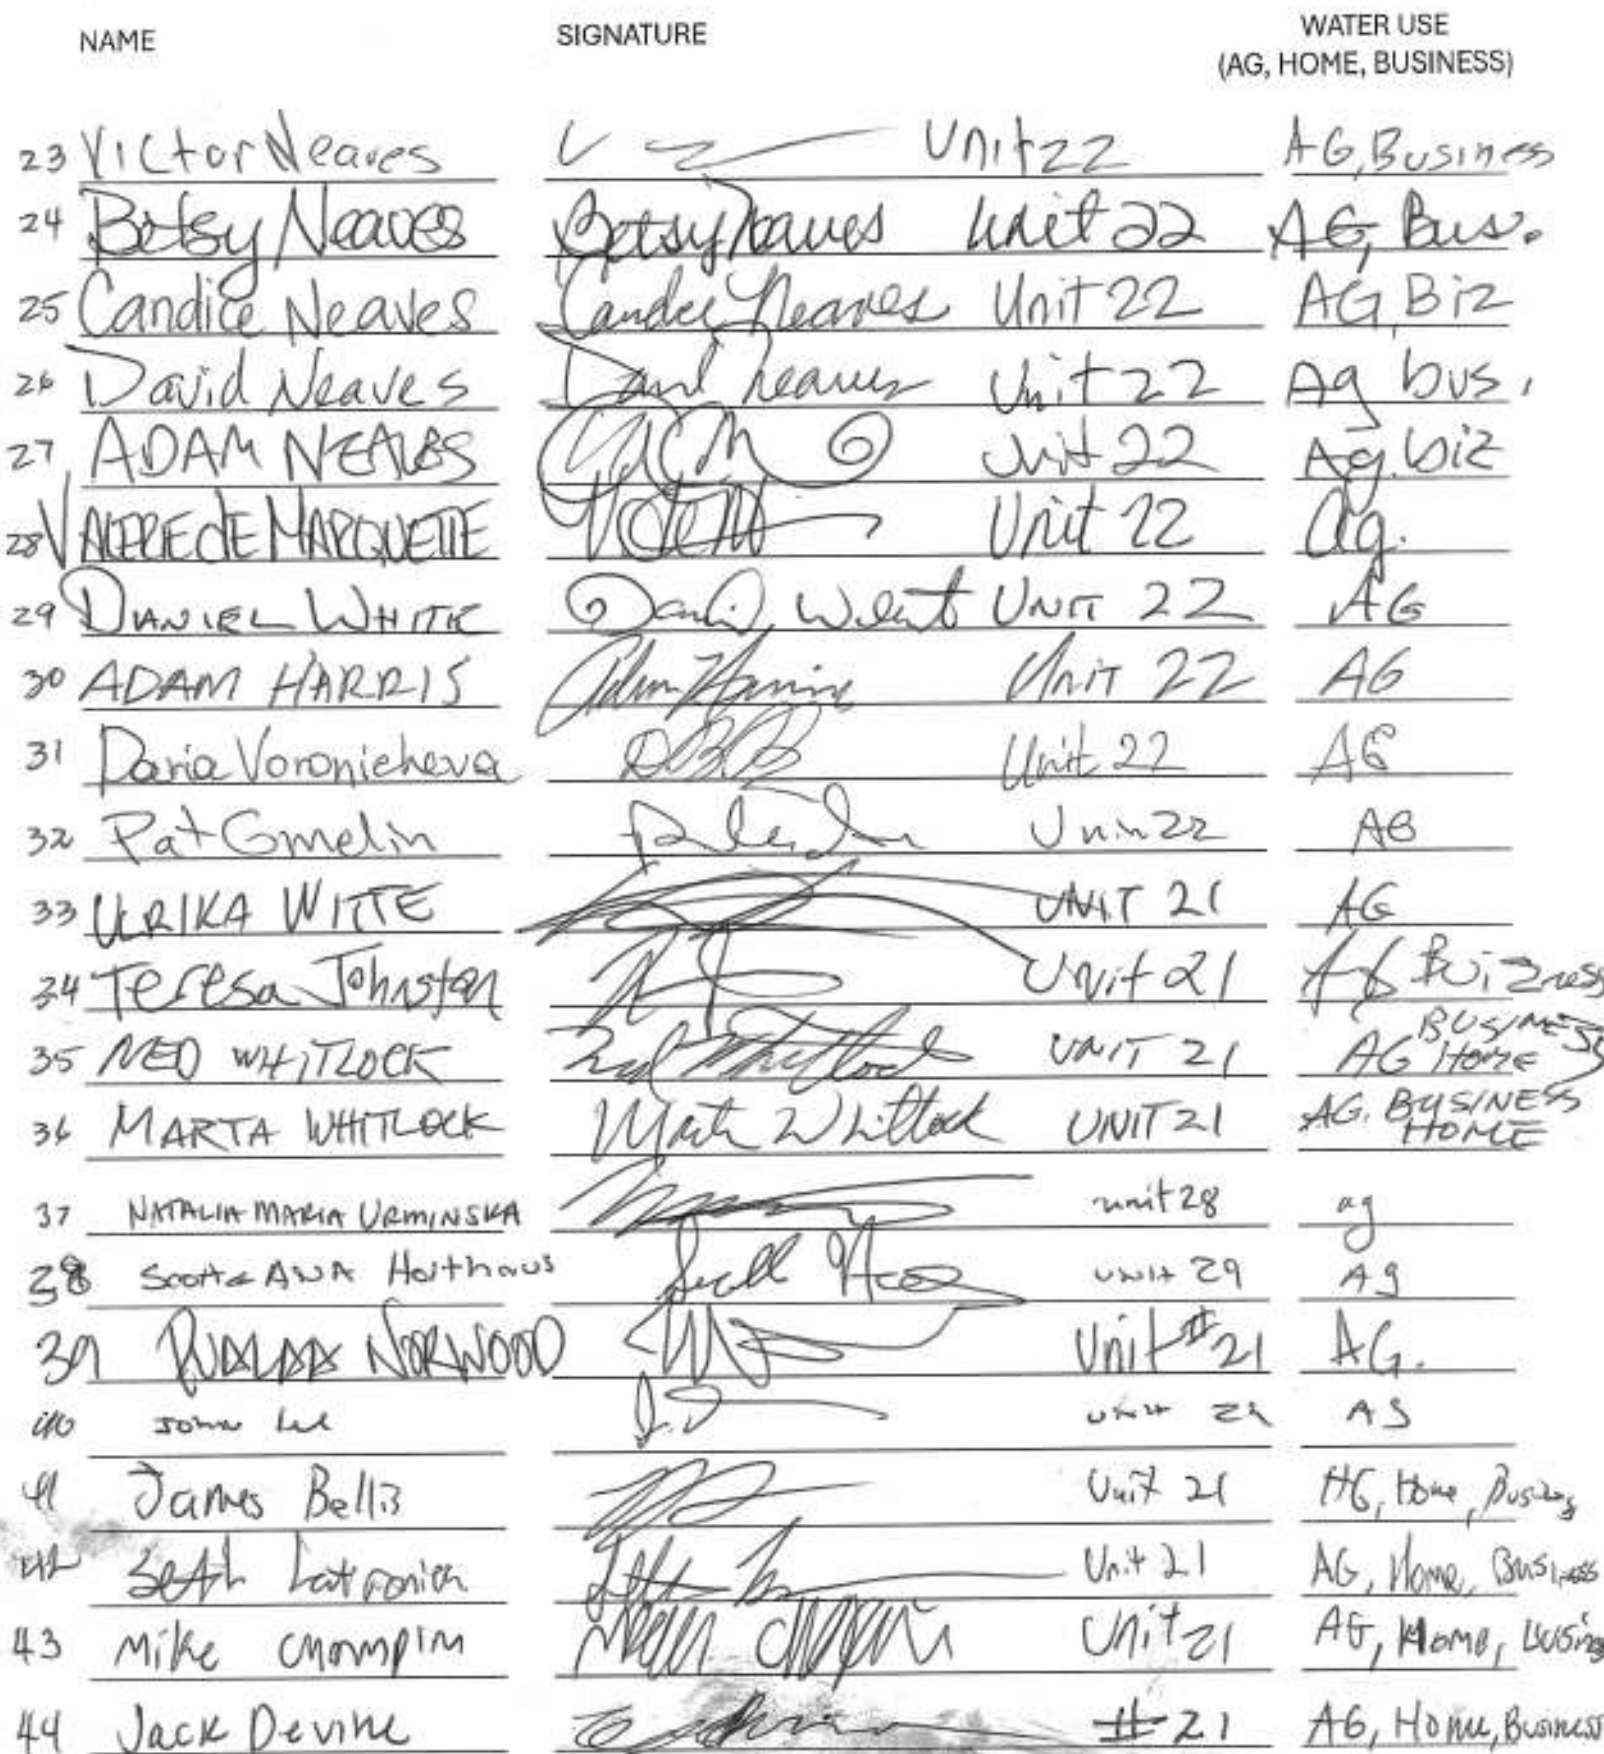 NAME SIGNATURE WATER USE
(AG, HOME, BUSINESS)
23 Victor Neaves Unit 22 AG, Business
24 Betsy Neaves Betsy Neaves Unit 22 AG, Bus.
25 Candice Neaves Candice Neaves Unit 22 AG, Biz
26 David Neaves David Neaves Unit 22 Ag bus.
27 ADAM NEAVES Unit 22 Ag. biz
28 VALERIE dE MARQUETTE Unit 22 ag.
29 DANIEL WHITE Unit 22 AG
30 ADAM HARRIS Adam Harris Unit 22 AG
31 Daria Voronicheva Unit 22 AG
32 Pat Gmelin 22 AG
33 ULRIKA WITTE UNIT 21 AG
34 Teresa Johnston Unit 21 Ag Buizness
35 NED WHITLOCK Ned Whitlock UNIT 21 AG BUSINESS HOME
36 MARTA WHITLOCK Marta Whitlock UNIT 21 AG. BUSINESS HOME
37 NATALIA MARIA URMINSKA unit 28 ag
38 Scott & ANA Holthaus Scott unit 29 Ag
39 NORWOOD Unit #21 AG.
40 John Lee unit AG
41 James Bellis Unit 21 AG, Home, Business
42 Seth Latronica Unit 21 AG, Home, Business
43 Mike Champim Unit 21 AG, Home, busine
44 Jack Devine #21 AG, Home, Business